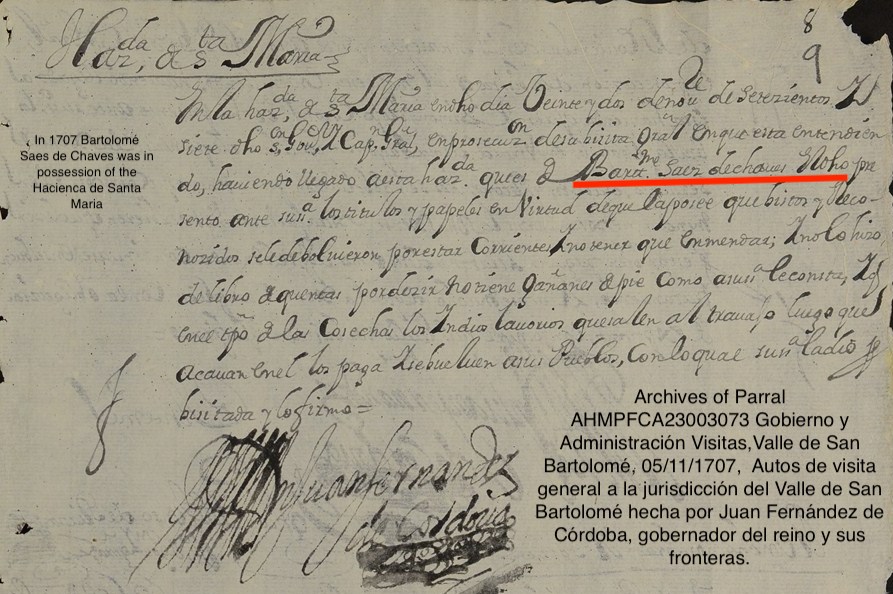 Haz.da, de S.ta Maria
8
9
En la haz.da, de S.ta Maria en dho dia Veinte y dos de nov.re de Setezientos Y
siete dho S.or Gov.or, Y Cap.n Gral, en prosecuz.on de su bisita Gral en que esta entendien
do, haviendo llegado a esta haz.da que es de Bart.me Saez de chaues Y dho pre
sento ante sus.a los titulos y papeles en Virtud de que la posee que bistos y Reco-
nozidos se le deboluieron por estar Corrientes Y no tener que enmendar; Y no lo hizo
de libro de quentas por dezir no tiene gañanes de pie como a sus.a le consta, Y q
en el tpo de las Cosechas los Yndios lauorios que salen al trauajo luego que
acauan en el los paga Y se bueluen a sus Pueblos, Con lo qual sus.a la dio p
bisitada y lo firmo =
Juan fernandez
de Cordoua
In 1707 Bartolomé
Saes de Chaves was in
possession of the
Hacienca de Santa
Maria
Archives of Parral
AHMPFCA23003073 Gobierno y
Administración Visitas,Valle de San
Bartolomé, 05/11/1707, Autos de visita
general a la jurisdicción del Valle de San
Bartolomé hecha por Juan Fernández de
Córdoba, gobernador del reino y sus
fronteras.